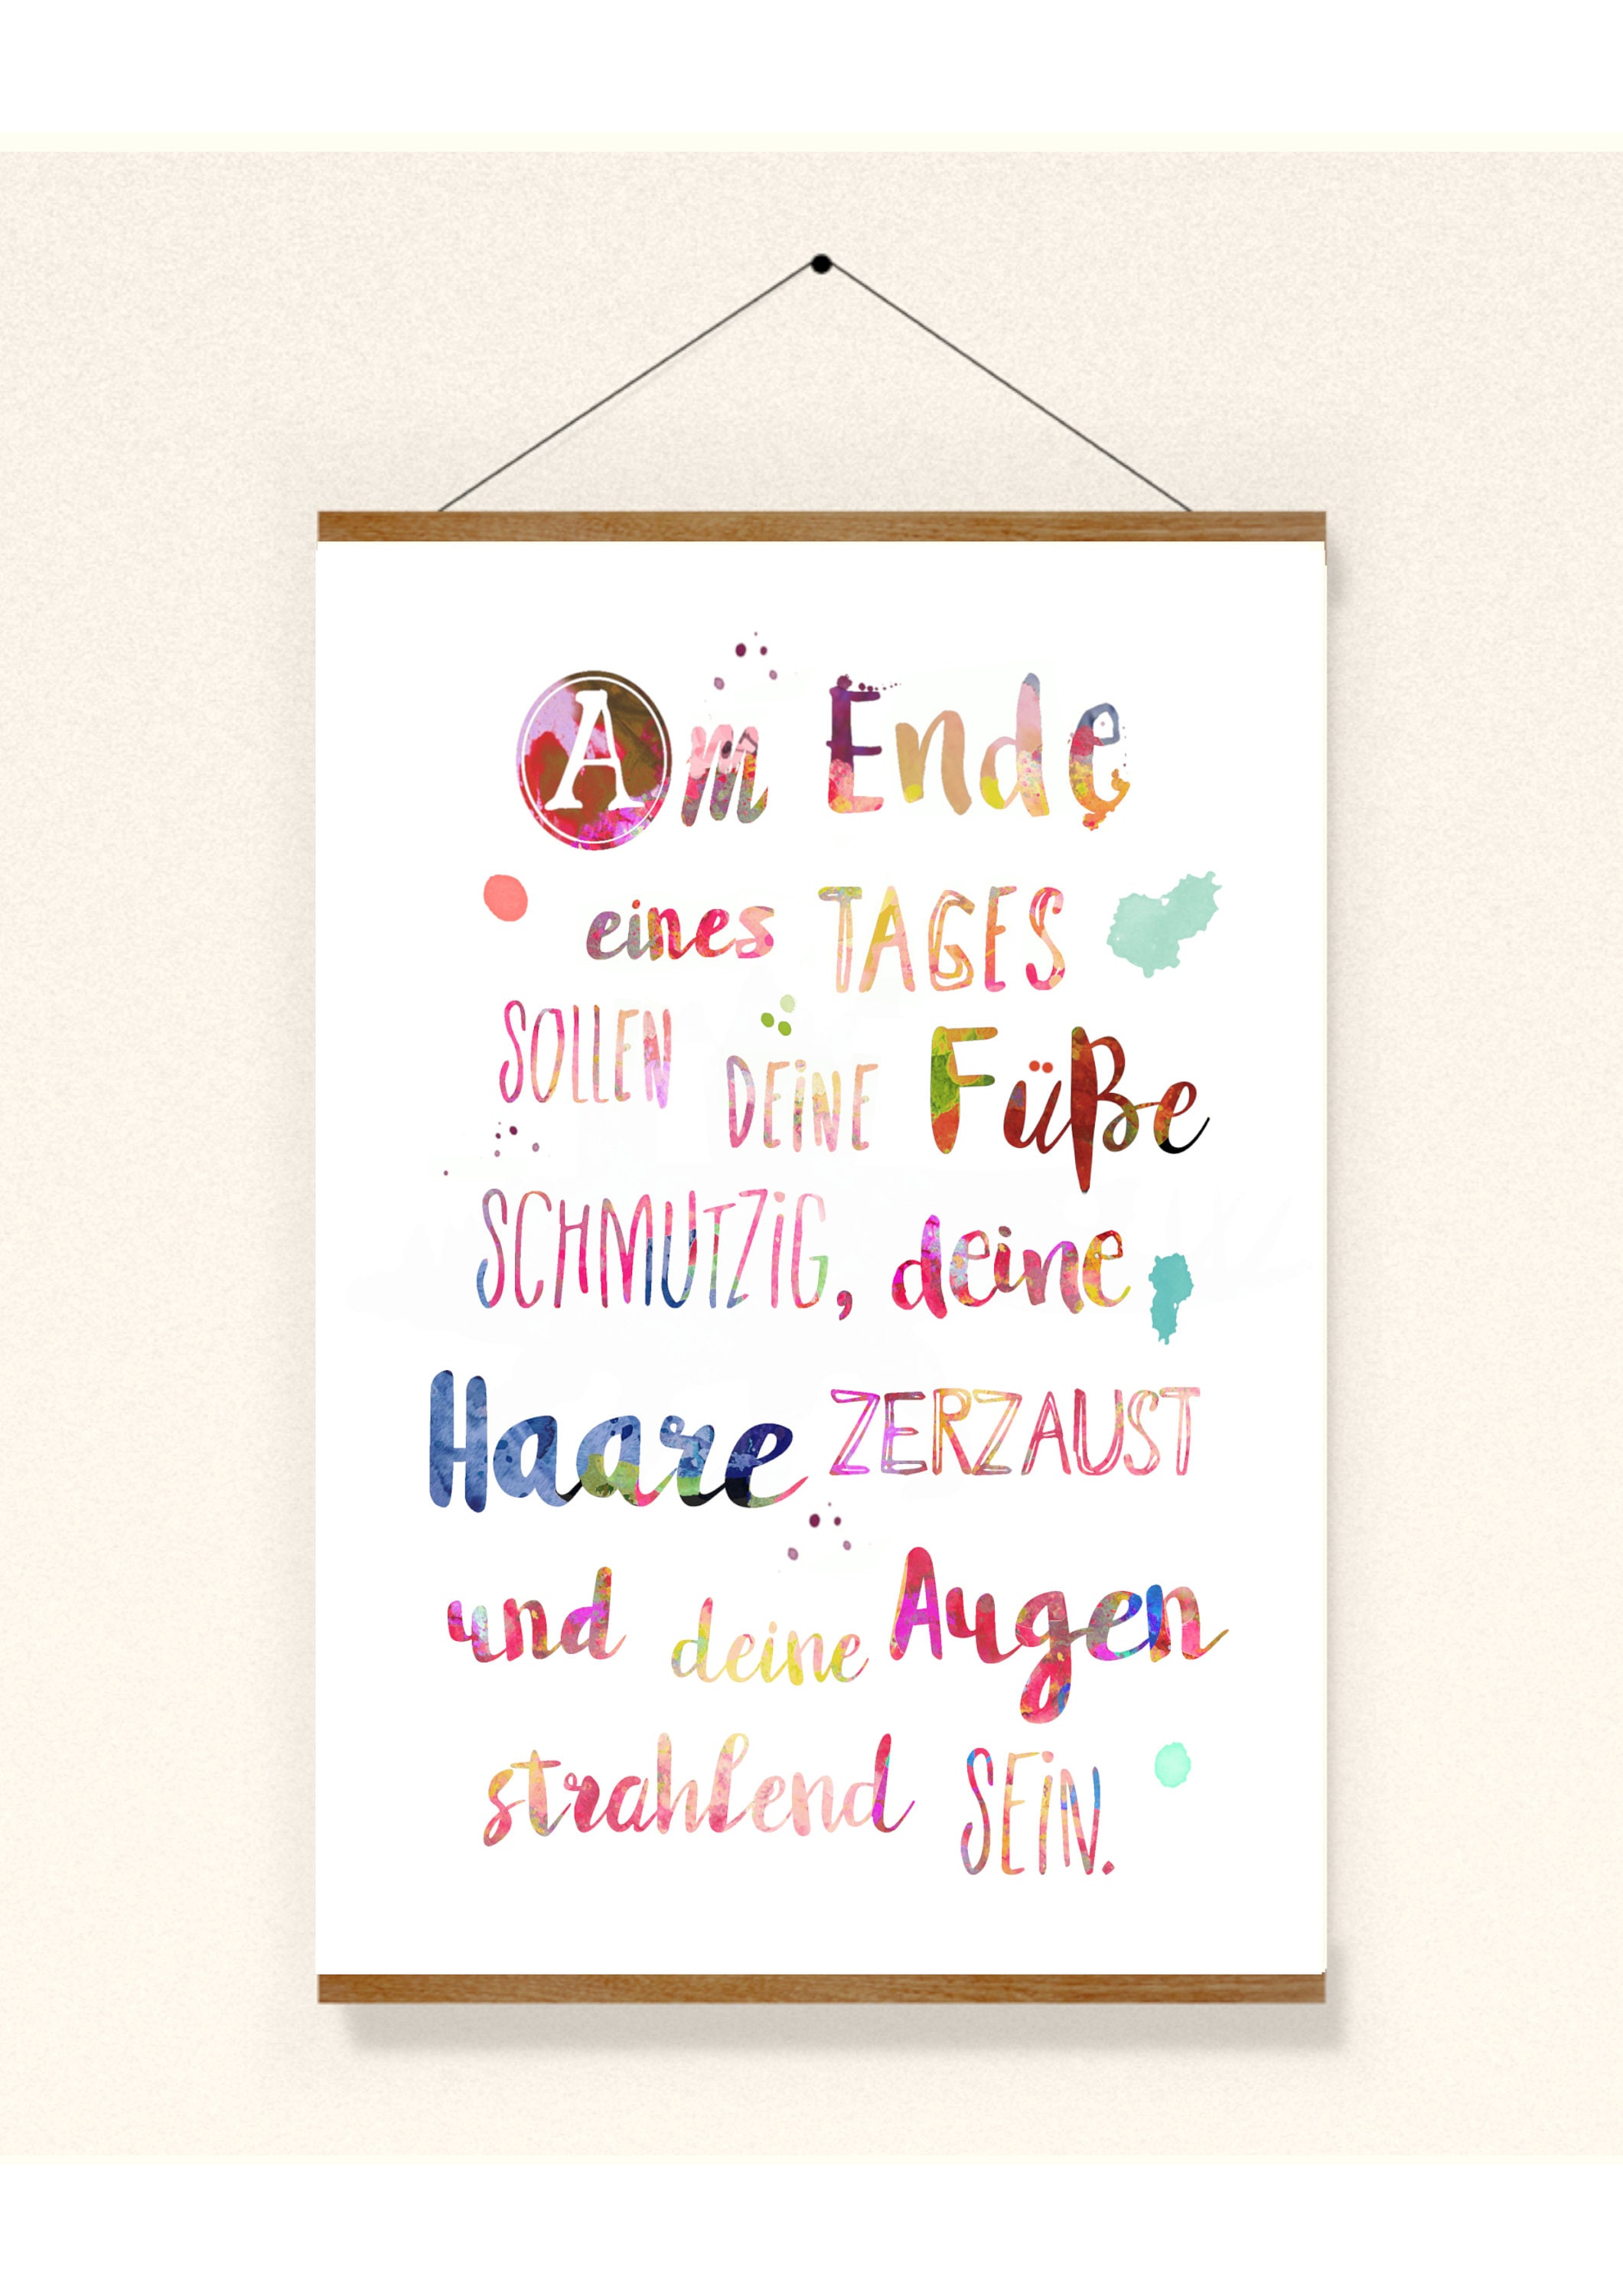 Am Ende
eines TAGES
SOLLEN DEiNE Füße
SCHMUTZiG, deine
Haare ZERZAUST
und deine Augen
strahlend SEiN.